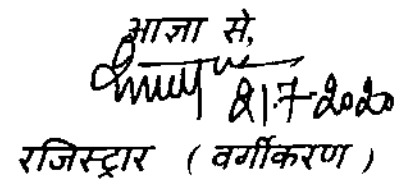 आज्ञा से,
21.7.2020
रजिस्ट्रार ( वर्गीकरण )